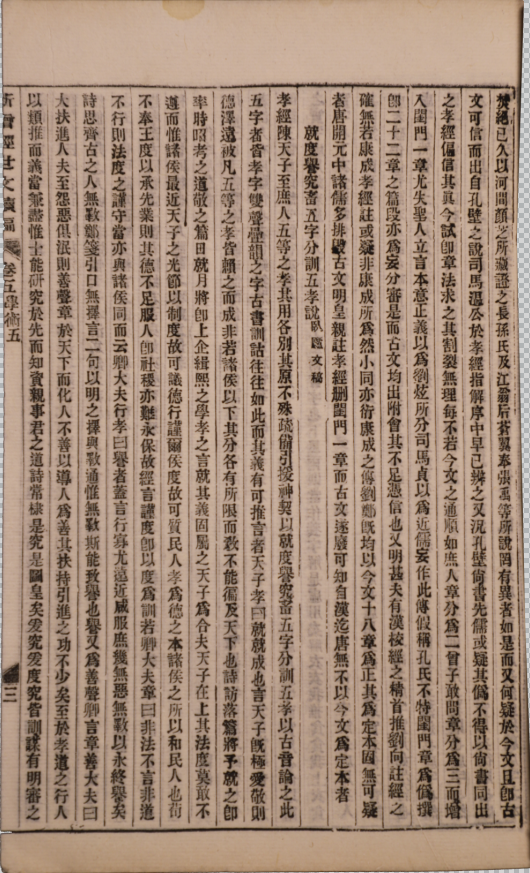 焚絕已久以河間顏芝所藏證之長孫氏及江翁后蒼翼奉張禹等所說罔有異者如是而又何疑於今文且卽古
文可信而出自孔壁之說司馬溫公於孝經指解序中早已辨之又況孔壁尙書先儒或疑其僞不得以尙書同出
之孝經偏信其真今試卽章法求之其割裂無理每不若今文之通順如庶人章分爲二曾子敢問章分爲三而增
入閨門一章尤失聖人立言本意正義以爲劉炫所分司馬貞以爲近儒妄作此傳假稱孔氏不特閨門章爲僞撰
卽二十二章之篇段亦爲妄分審是而古文均出附會其不足憑信也又明甚夫有漢校經之精首推劉向註經之
確無若康成孝經註或疑非康成所爲然小同亦衍康成之傳劉鄭旣均以今文十八章爲正其爲定本固無可疑
者唐開元中諸儒多排毀古文明皇親註孝經刪閨門一章而古文遂廢可知自漢迄唐無不以今文爲定本者
就度譽究畜五字分訓五孝說臥廬文稿
孝經陳天子至庶人五等之孝其用各別其原不殊疏備引援神契以就度譽究畜五字分訓五孝以古音論之此
五字者皆孝字雙聲疊韻之字古書訓詁往往如此而其義有可推言者天子孝曰就就成也言天子旣極愛敬則
德澤遠被凡五等之孝皆賴之而成非若諸侯以下其分各有所限而教不能徧及天下也詩訪落篇將予就之卽
率時昭考之道敬之篇日就月將卽上企緝熙之學孝之言就其義固屬之天子爲合夫天子在上其法度莫敢不
遵而惟諸侯最近天子之光節以制度故可議德行謹爾侯度故可質民人孝爲德之本諸侯之所以和民人也苟
不奉王度以承先業則其德不足服人卽社稷亦難永保故經言謹度卽以度爲訓若卿大夫章曰非法不言非道
不行則法度之謹守當亦與諸侯同而云卿大夫行孝曰譽者蓋言行寡尤遠近咸服庶幾無惡無斁以永終譽矣
詩思齊古之人無斁鄭箋引口無擇言二句以明之擇與斁通惟無斁斯能致譽也譽又爲善聲卿言章善大夫曰
大扶進人夫至怨惡俱泯則善聲章於天下而化人不善以導人爲善其扶持引進之功不少矣至於孝道之行人
以類推而義當兼盡惟士能研究於先而知資親事君之道詩常棣是究是圖皇矣爰究爰度究皆訓謀有明審之
新會經世文續編 卷五學術五 三